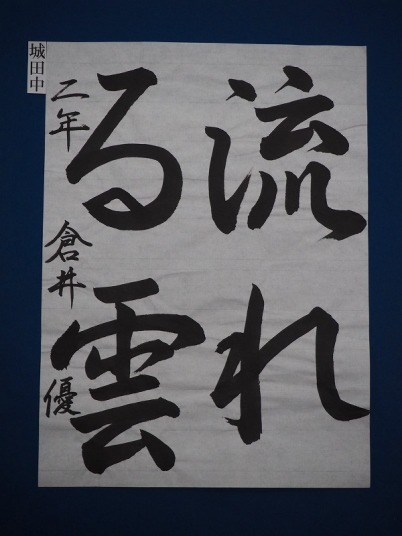 流れ
る雲
二年 倉井 優
城田中